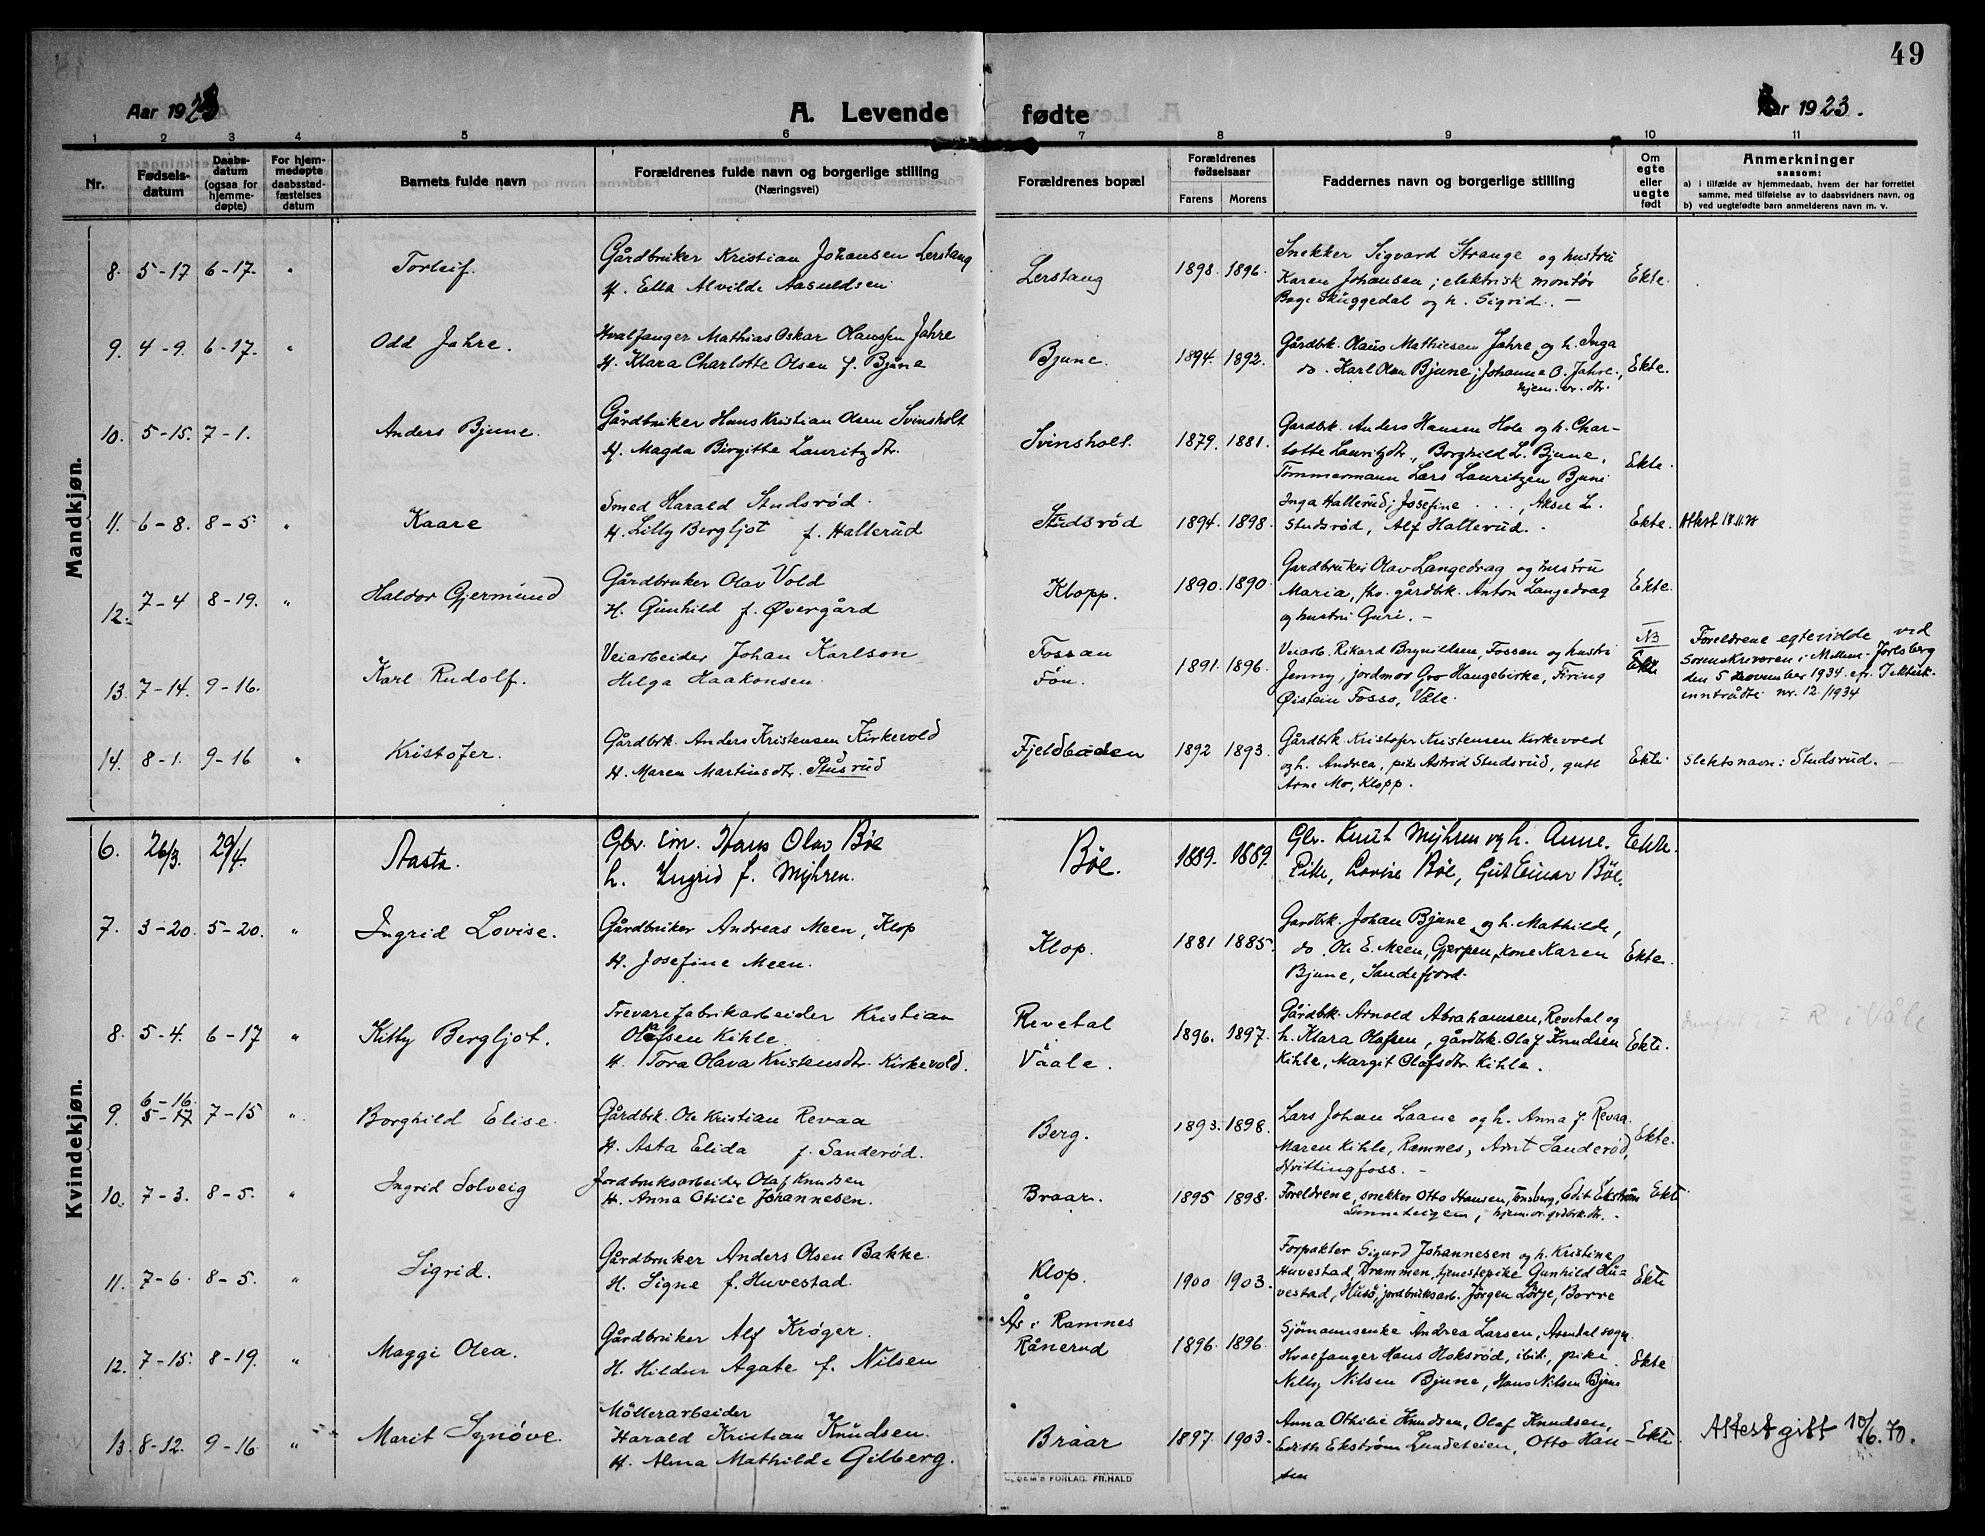 49
Aar 1923
A. Levende
fødte
Aar 1923.
1 2 3 4 5 6 7 8 9 10 11
Nr.
Fødsels-
datum
Daabs-
datum
(ogsaa for
hjemme-
døpte)
For hjem-
medøpte
daabsstad-
fæstelses
datum
Barnets fulde navn
Forældrenes fulde navn og borgerlige stilling
(Næringsvei)
Forældrenes bopæl
Forældrenes
fødselsaar
Farens Morens
Faddernes navn og borgerlige stilling
Om
egte
eller
uegte
født
Anmerkninger
saasom:
a) i tilfælde av hjemmedaab, hvem der har forrettet
samme, med tilføielse av to daabsvidners navn, og
b) ved uegtefødte barn anmelderens navn m. v.
Mandkjøn.
8. 5-17 6-17. " Torleif.
Gårdbruker Kristian Johansen Lerstang
H. Ella Alvilde Aasuldsen.
Lerstang 1898. 1896.
Snekker Sigvard Strange og hustru
Karen Johansen; elektrisk montør
Skuggedal og h. Sigrid. –
Ekte.
9. 4-9. 6-17. " Odd Jahre.
Hvalfanger Mathias Oskar Olaussen Jahre
H. Klara Charlotte Olsen f. Bjune
Bjune. 1894. 1892.
Gårdbk. Olaus Mathiesen Jahre og h. Inga
do. Karl Olsen Bjune; Johanna O. Jahre,
hjem. vr. dtr.
Ekte.
10. 5-15. 7-1. Anders Bjune.
Gårdbruker Hans Kristian Olsen Svinsholt
H. Magda Birgitte Lauritzdtr.
Svinsholt. 1879. 1881.
Gardbk. Anders Hansen Hole og h. Char-
lotte Lauritzdtr., Borghild L. Bjune,
Tømmermann Lars Lauritzen Bjune
Ekte.
11. 6-8. 8-5 " Kaare
Smed Harald Studsrød.
H. Lilly Bergljot f. Hallerud
Studsrød 1894. 1898.
Inga Hallerud; Josefine . . . , Aksel L.
Studsrød, Alf Hallerud. -
Ekte. Attest
12. 7-4 8-19. " Haldor Gjermund
Gårdbruker Olav Vold
H. Gunhild f. Øvergård
Klopp. 1890. 1890.
Gardbruker Olav Langedrag og hustru
Maria, fho. gårdbk. Anton Langedrag
og hustru Guri. –
Ekte.
13. 7-14. 9-16. Karl Rudolf.
Veiarbeider Johan Karlson
Helga Haakonsen.
Fossan
Fön. 1891. 1896.
Veiarb. Rikard Brynildsen, Fossen og hustru
Jenny, jordmor Gro Haugebirke, Firing
Øistein Fosso, Våle.
NB
Ekte
Foreldrene egteviede ved
Sorenskriveren i Mellem-Jarlsberg
den 5 november 1934.
nr. 12/1934
14. 8-1. 9-16 " Kristofer.
Gårdbrk. Anders Kristensen Kirkevold
H. Maren Martinsdtr. Stusrud
Fjeldbaden 1892 1893.
Gårdbk. Kristofer Kristensen Kirkevold
og h. Andrea, pike Astrid Studsrud, gutt
Arne Mo, Klopp.
Ekte. Slektsnavn: Studsrud. –
Kvindekjøn.
6. 26/3. 29/4. Aasta.
Gbr. Hans Olav Böe
h. Ingrid f. Myhren.
Böe. 1889. 1889.
Gbr. Knut Myhren og h. Anne.
Pike, Lovise Böe, Gut Einar Böe.
Ekte.
7. 3-20. 5-20. " Ingrid Lovise.
Gårdbruker Andreas Meen, Klop
H. Josefine Meen.
Klop. 1881 1885.
Gardbk. Johan Bjune og h. Mathilde,
do. Ole E. Meen, Gjerpen, kone Karen
Bjune, Sandefjord.
Ekte.
8. 5-4. 6-17 " Kitty Bergljot.
Trevarefabrikarbeider Kristian
Olafsen Kihle.
H. Tora Olava Kristensdtr. Kirkevold.
Revetal
Våale. 1896. 1897.
Gårdbk. Arnold Abrahamsen, Revetal og
h. Klara Olafsen, gårdbk. Olaf Knudsen
Kihle, Margit Olafsdtr. Kihle.
Ekte. i Våle
9. 6-16. 5-17 7-15 " Borghild Elise.
Gårdbk. Ole Kristian Revaa
H. Asta Elida f. Sanderød.
Berg. 1893. 1898.
Lars Johan Laane og h. Anna f. Revaa.
Maren Kihle, Ramnes, Arnt Sanderød,
Hvittingfoss. –
Ekte.
10. 7-3. 8-5. " Ingrid Solveig
Jordbruksarbeider Olaf Knudsen
H. Anna Otilie Johannesen.
Braar. 1895 1898.
Foreldrene, snekker Otto Hansen, Tønsberg, Edit Ekstrøm
hjem.vr. grdbrk. dtr. -
Ekte
11. 7-6. 8-5. " Sigrid.
Gårdbruker Anders Olsen Bakke.
H. Signe f. Huvestad.
Klop. 1900 1903.
Forpakter Sigurd Johannesen og h. Kristine
Huvestad, Drammen, tjenestepike Gunhild Hu-
vestad, Husö, jordbruksarb. Jörgen Lörje, Borre
Ekte
12. 7-15. 8-19. " Maggi Olea.
Gårdbruker Alf Krøger.
H. Hildur Agate f. Nilsen
Ås i Ramnes
Rånerud 1896. 1896.
Sjömannsenke Andrea Larsen, Asendal sogn.
Hvalfanger Hans Hoksrød, ibid., pike
Nelly Nilsen Bjune, Hans Nilsen Bjune
Ekte
13. 8-12. 9-16 " Marit Synöve.
Möllerarbeider
Harald Kristian Knudsen.
H. Alma Mathilde Gilberg.
Bråar 1897. 1903.
Anna Othilie Knudsen, Olaf Knudsen,
Edith Ekstrøm Lundeteien, Otto Han-
sen
Ekte. Attest gitt 10/6.70.
FORLAG. FR.HALD